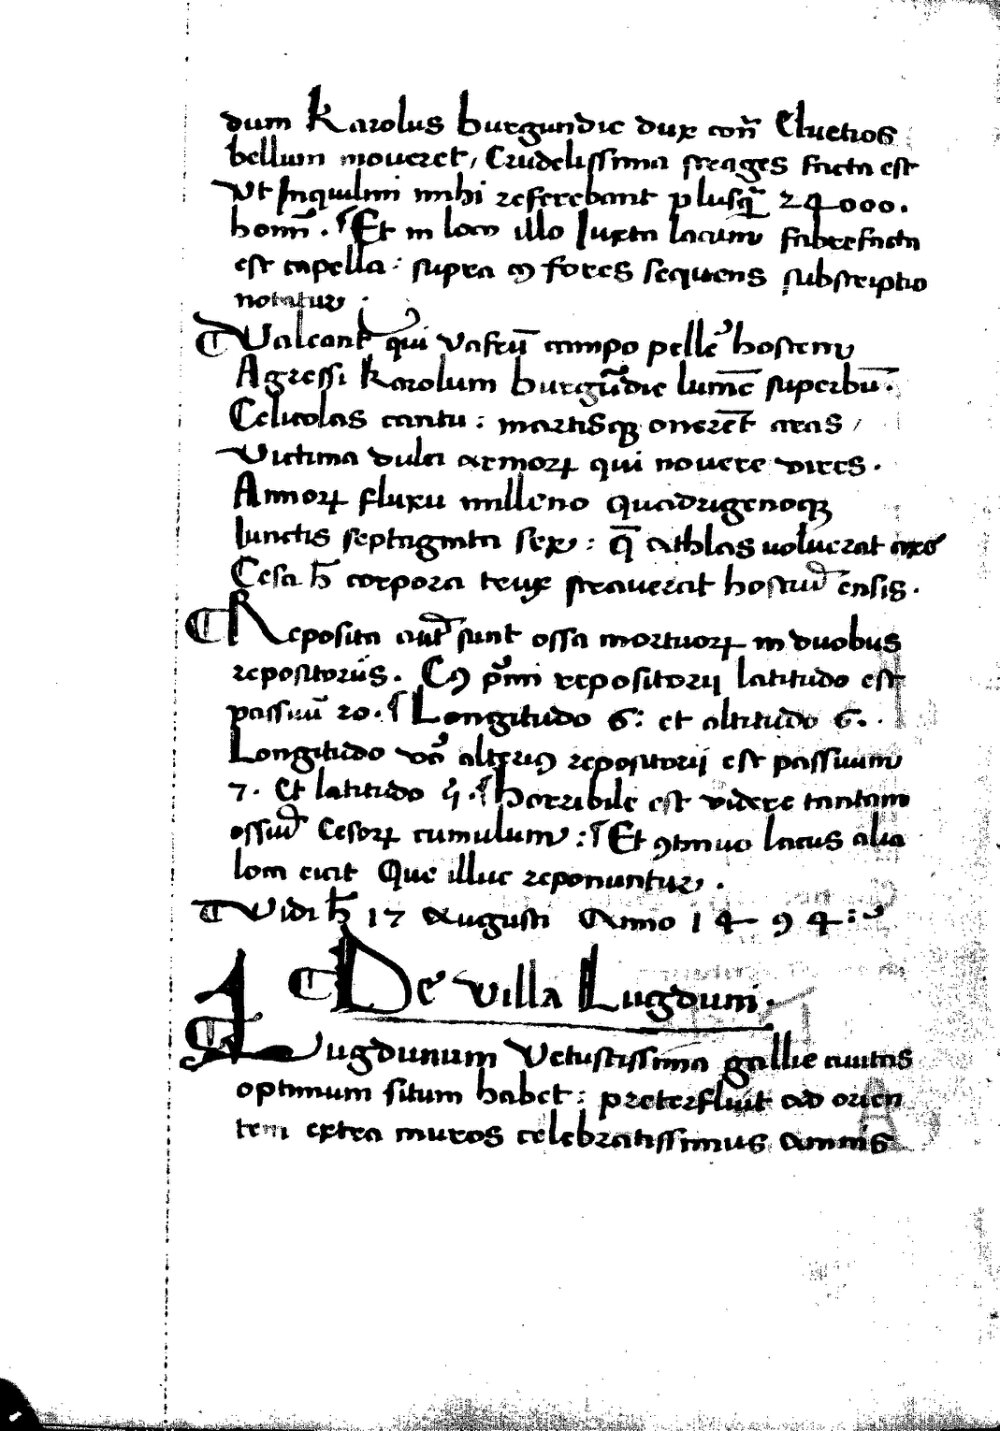 dum Karolus burgundie dux con̄ Eluetios
bellum moueret, Crudelissima streages facta est
Vt Inquilini mihi referebant plusq̃ 24000.
homı̄ . Et in loco illo Iuxta lacum fabrefacta
est capella : supra ꝯ fores sequens subscriptio
notatur .
Valeant qui vafrū campo pelle᷒ hostem
Agressi Karolum burgūdie lumē superbū .
Celicolas cantu : martisqꝫ onerēt aras /
Victima dulci armoꝝ qui nouere vires .
Annoꝝ fluxu milleno quadrigenoqꝫ
Iunctis septaginta sex : q̄ athlas voluerat axe
Cesa h̄ corpora trux strauerat hostiū ensis .
Reposita aut̄ sunt ossa mortuoꝝ in duobus
repositoriis . Cꝯ p̃mi repositorij latitudo est
passuū 20 . Longitudo 6 : et altitudo 6 .
Longitudo vō alteriꝯ repositorij est passuum
7 . Et latitudo . Horribile est videre tantam
ossiū Cesoꝝ cumulum : Et ꝯtinuo lacus alia
loca eicit Que illuc reponuntur .
Vidi h̄ 17 Augusti Anno 1494 :
De villa Lugduni .
Lugdunum Vetustissima gallie ciuitas
optimum situm habet : preterfluit ad orien
tem extra muros celebratissimus amnis